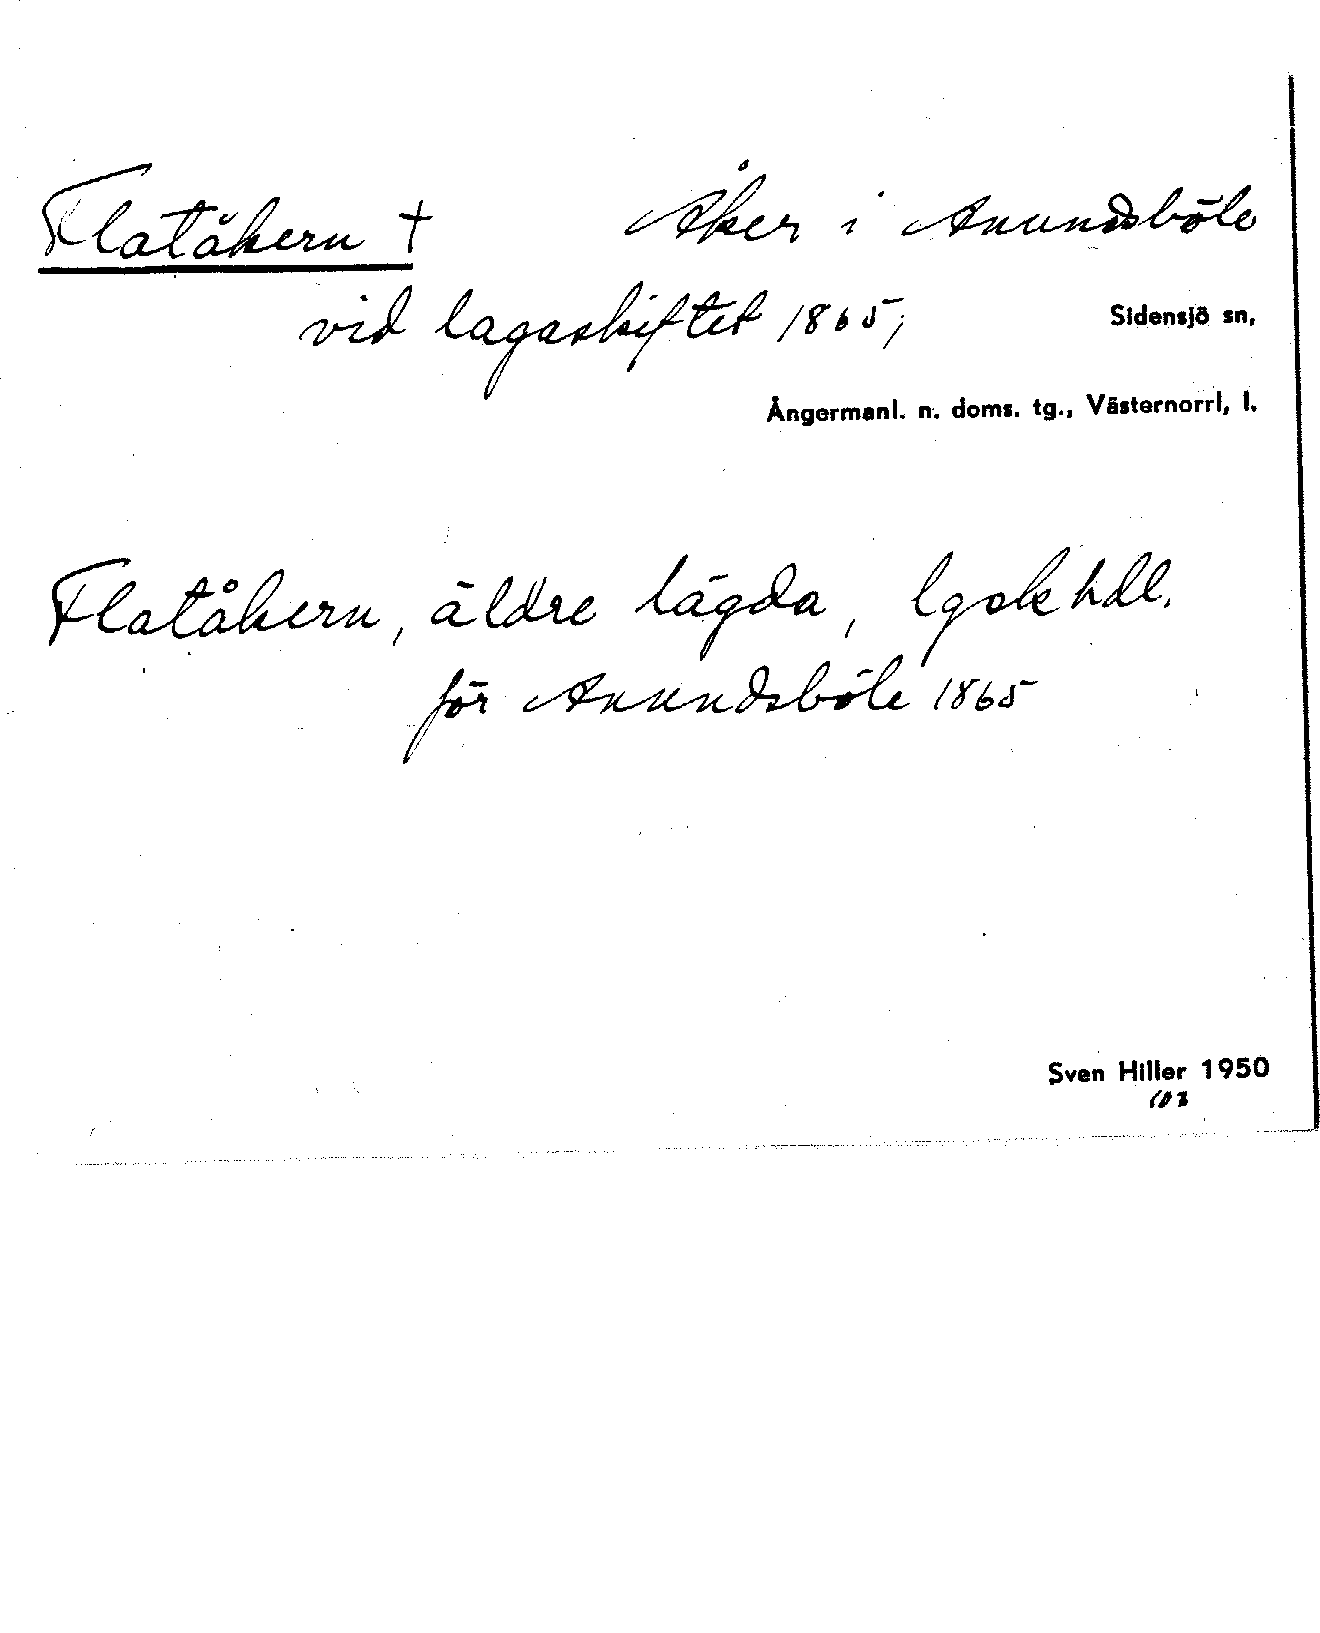 Flatåkern † Åker i Anundsböle
vid lagaskiftet 1865;
Sidensjö sn,
Ångermanl. n. doms. tg., Västernorrl, l.
Flatåkern, äldre lägda, lgsk hdl.
för Anundsböle 1865
Sven Hiller 1950